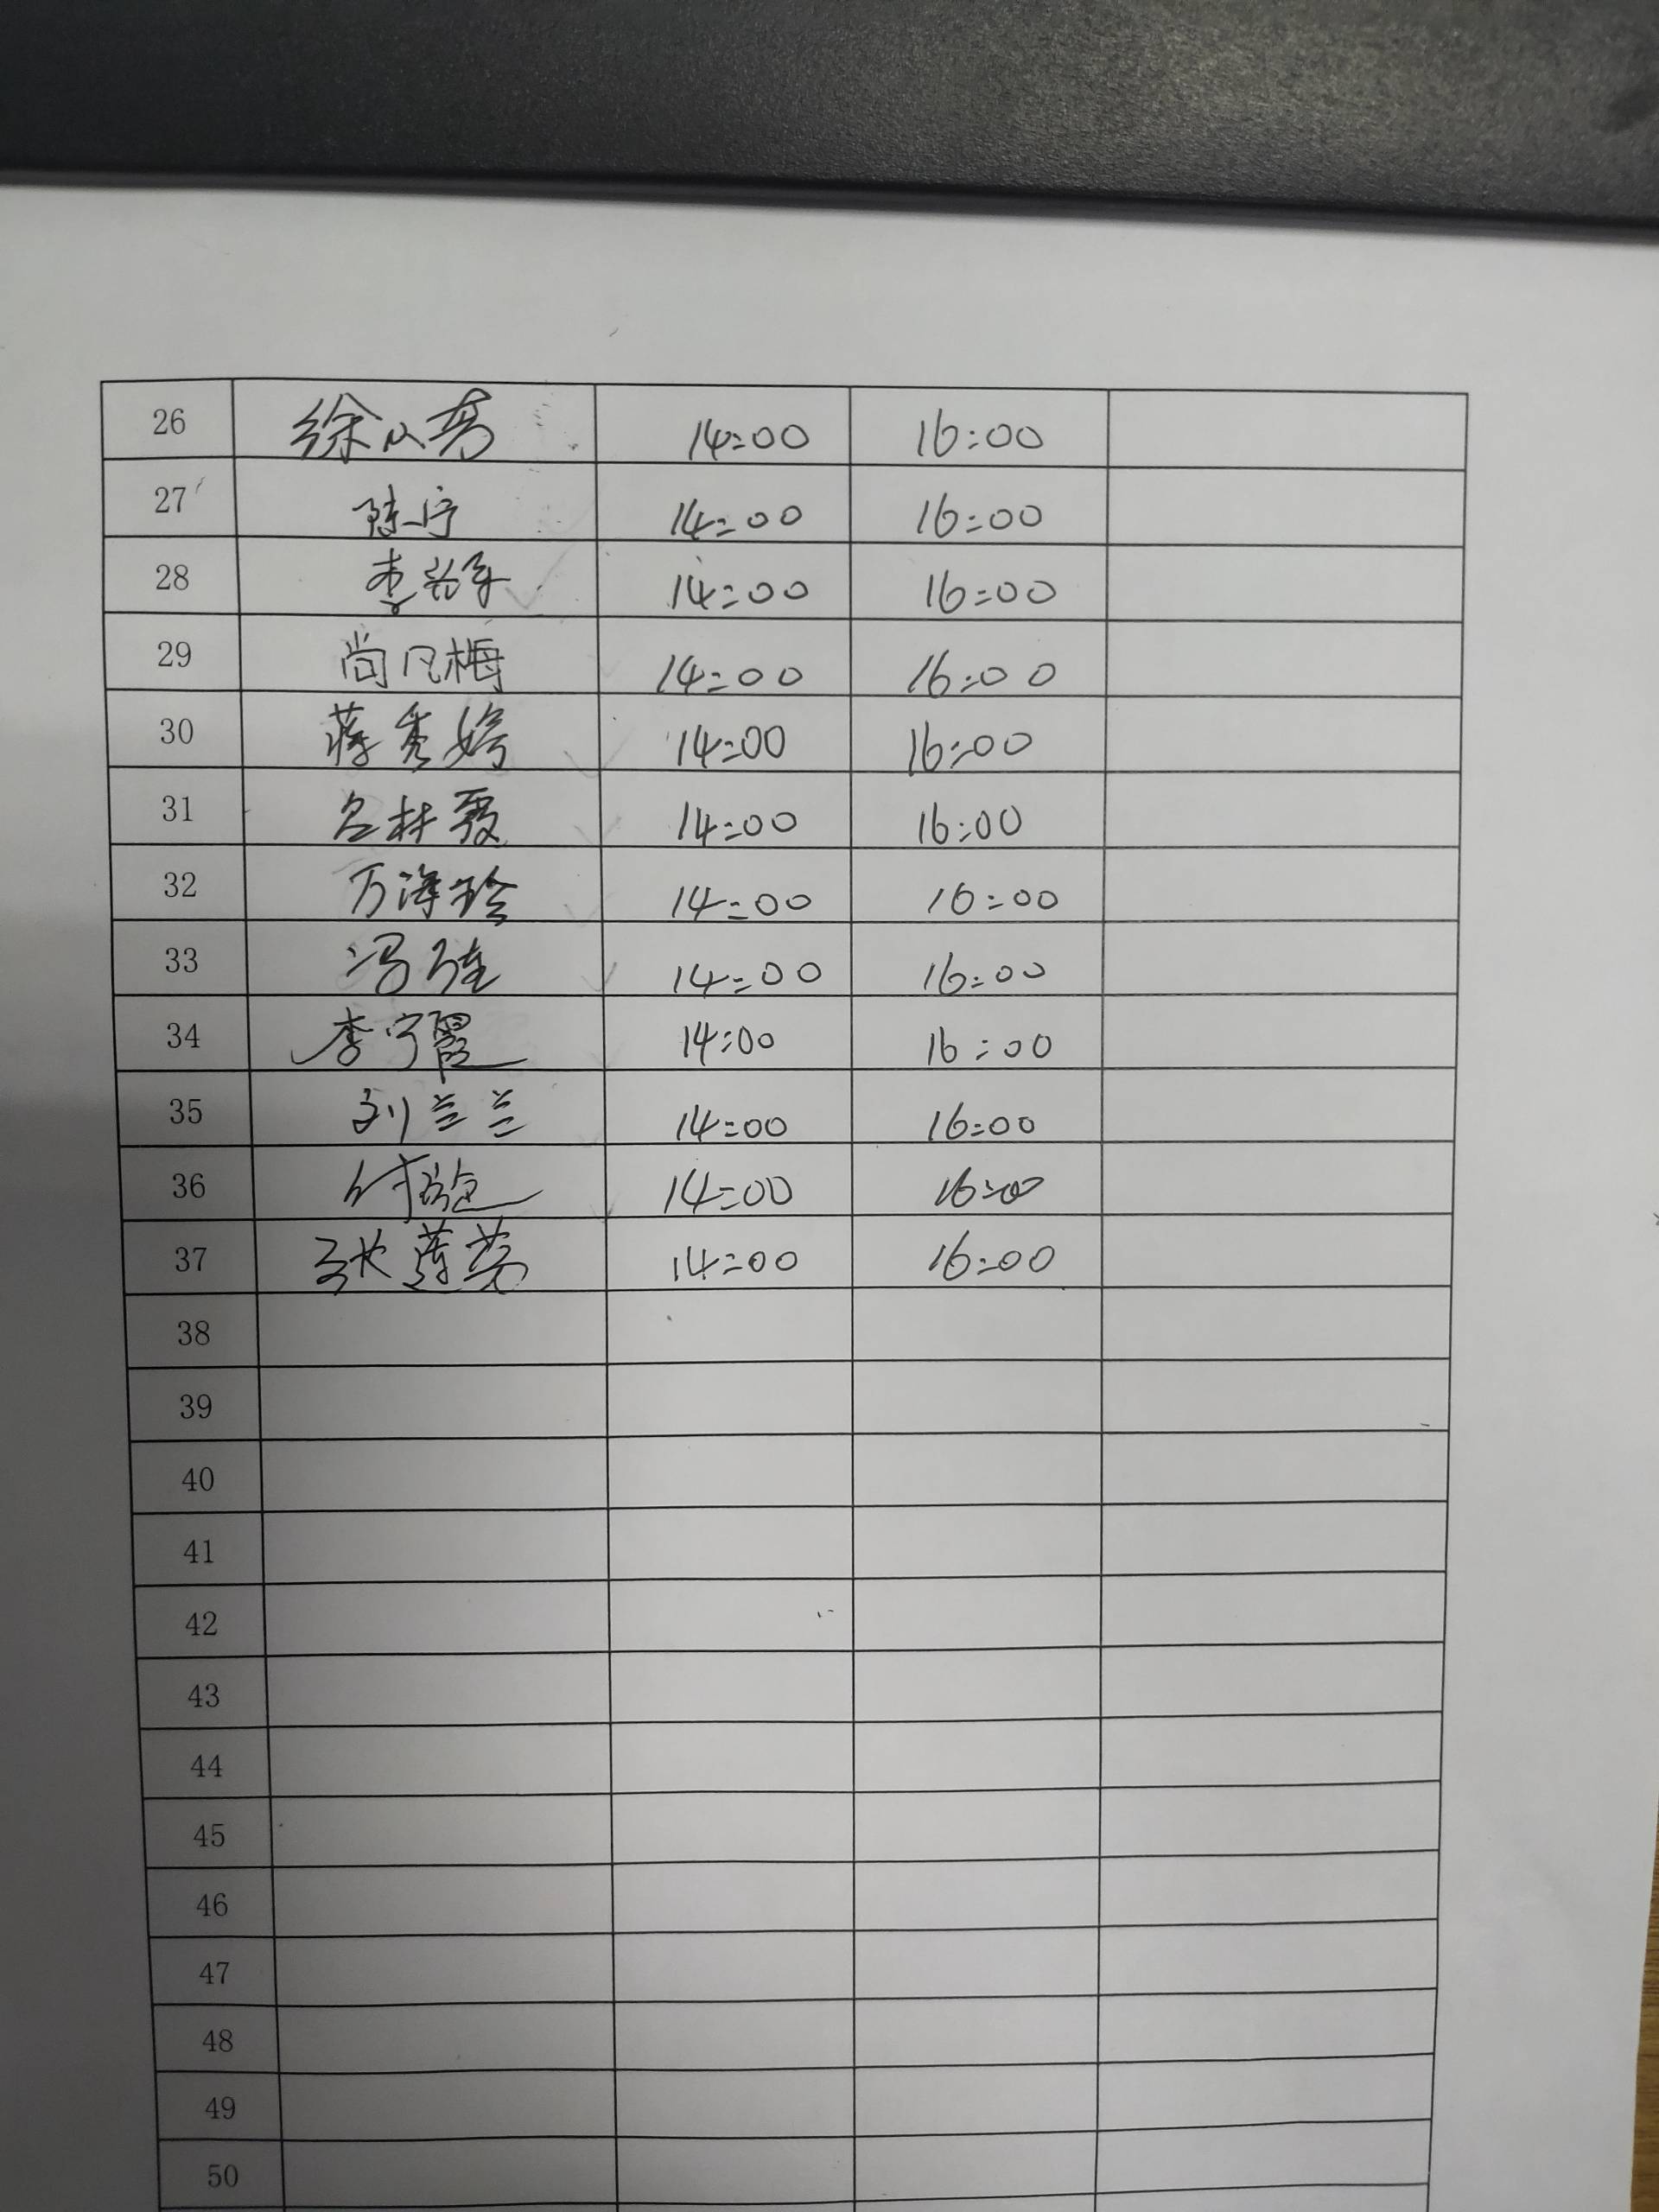 26 徐 14:00 16:00
27 陈宁 14:00 16:00
28 李 14:00 16:00
29 尚凡梅 14:00 16:00
30 蒋秀婷 14:00 16:00
31 吕林霞 14:00 16:00
32 万海玲 14:00 16:00
33 冯 14:00 16:00
34 李宁霞 14:00 16:00
35 刘兰兰 14:00 16:00
36 付 14:00 16:00
37 张莲芳 14:00 16:00
38
39
40
41
42
43
44
45
46
47
48
49
50